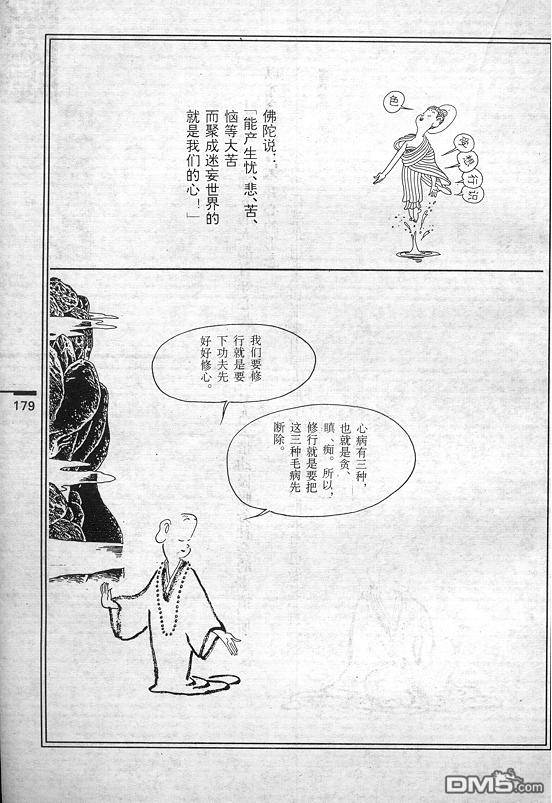 佛陀说：
「能产生忧、悲、苦、
恼等大苦
而聚成迷妄世界的
就是我们的心！」
色
受
想
行
识
我们要修
行就是要
下功夫先
好好修心。
心病有三种，
也就是贪、
瞋、痴。所以，
修行就是要把
这三种毛病先
断除。
179
DM5.com